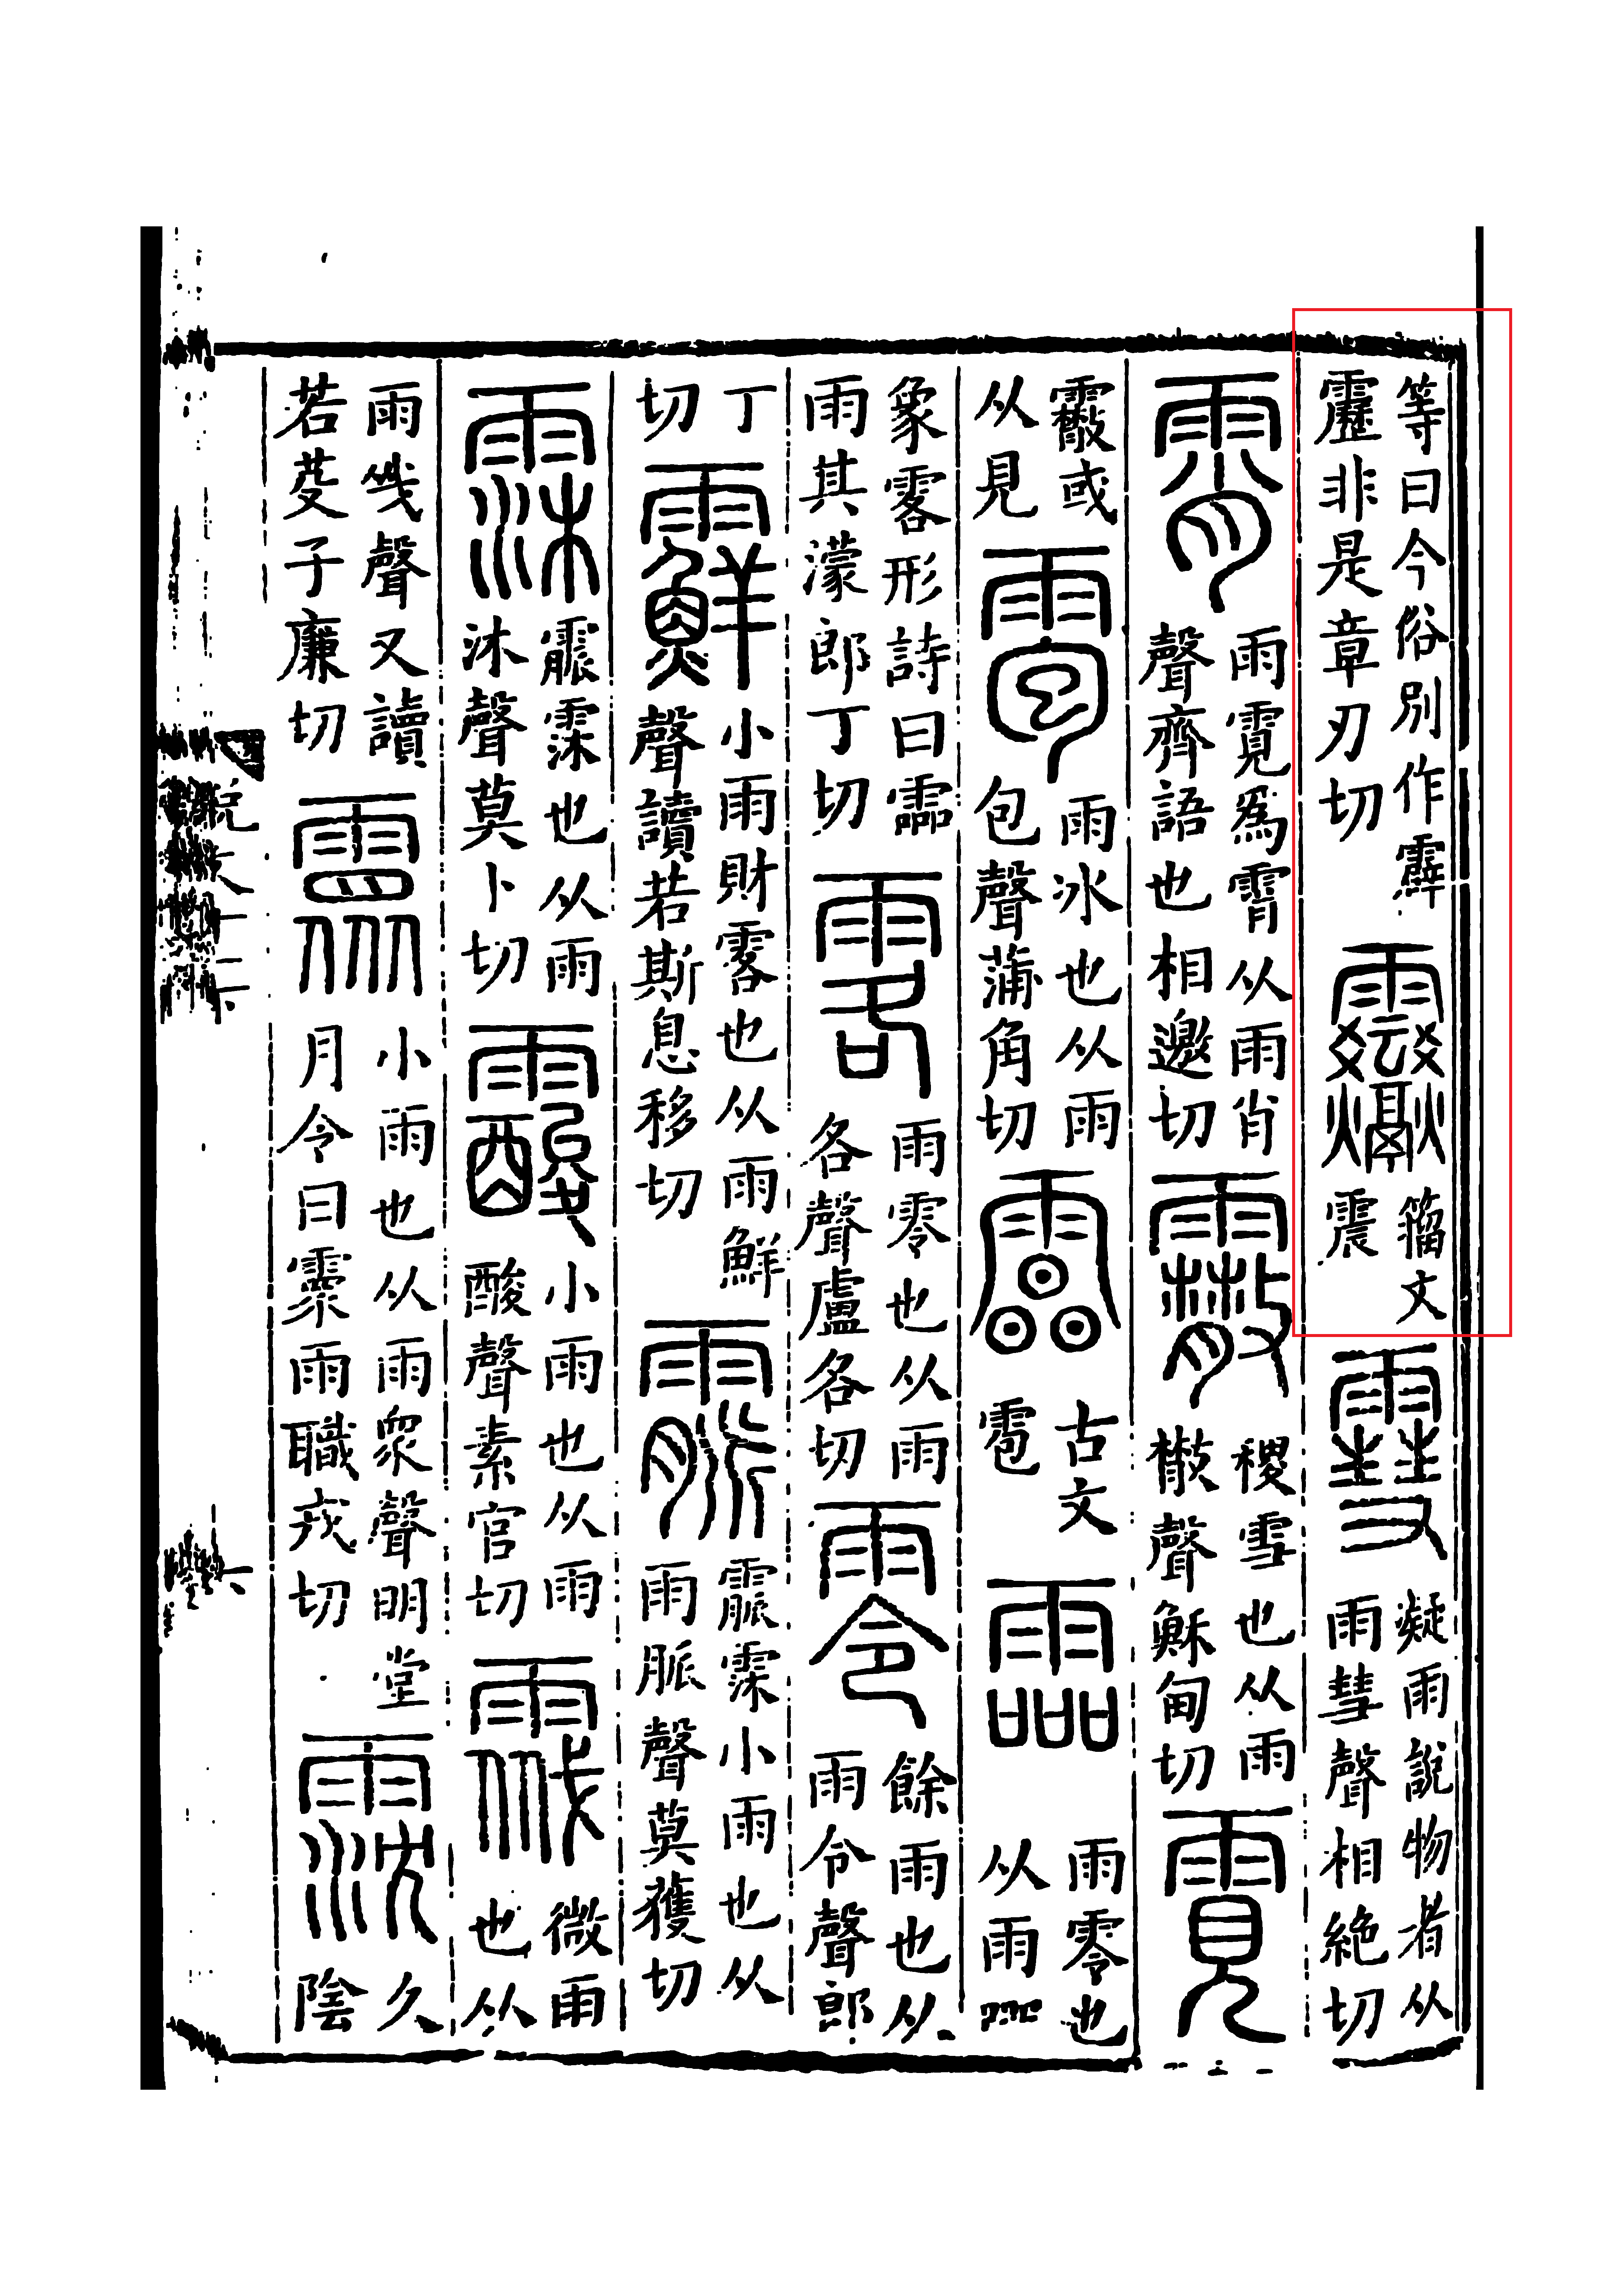 等曰今俗別作霹
靂非是章刃切
籀文
震
雪
凝雨說物者从
雨彗聲相絕切
霄
雨霓爲霄从雨肖
聲齊語也相邀切
霰
稷雪也从雨
㪔聲穌甸切
䨘
霰或
从見
雹
雨冰也从雨
包聲蒲角切
古文
雹
霝
雨零也
从雨𠱠
象䨩形詩曰霝
雨其濛郎丁切
䨩
雨零也从雨
各聲盧各切
零
餘雨也从
雨令聲郎
丁
切
𩆵
小雨財䨩也从雨鮮
聲讀若斯息移切
霢
霢霂小雨也从
雨脈聲莫獲切
霂
霢霂也从雨
沐聲莫卜切
𩆑
小雨也从雨
酸聲素官切
𩅼
微雨
也从
雨㦰聲又讀
若芟子廉切
䨦
小雨也从雨眾聲明堂
月令曰䨦雨職戎切
霃
久
陰